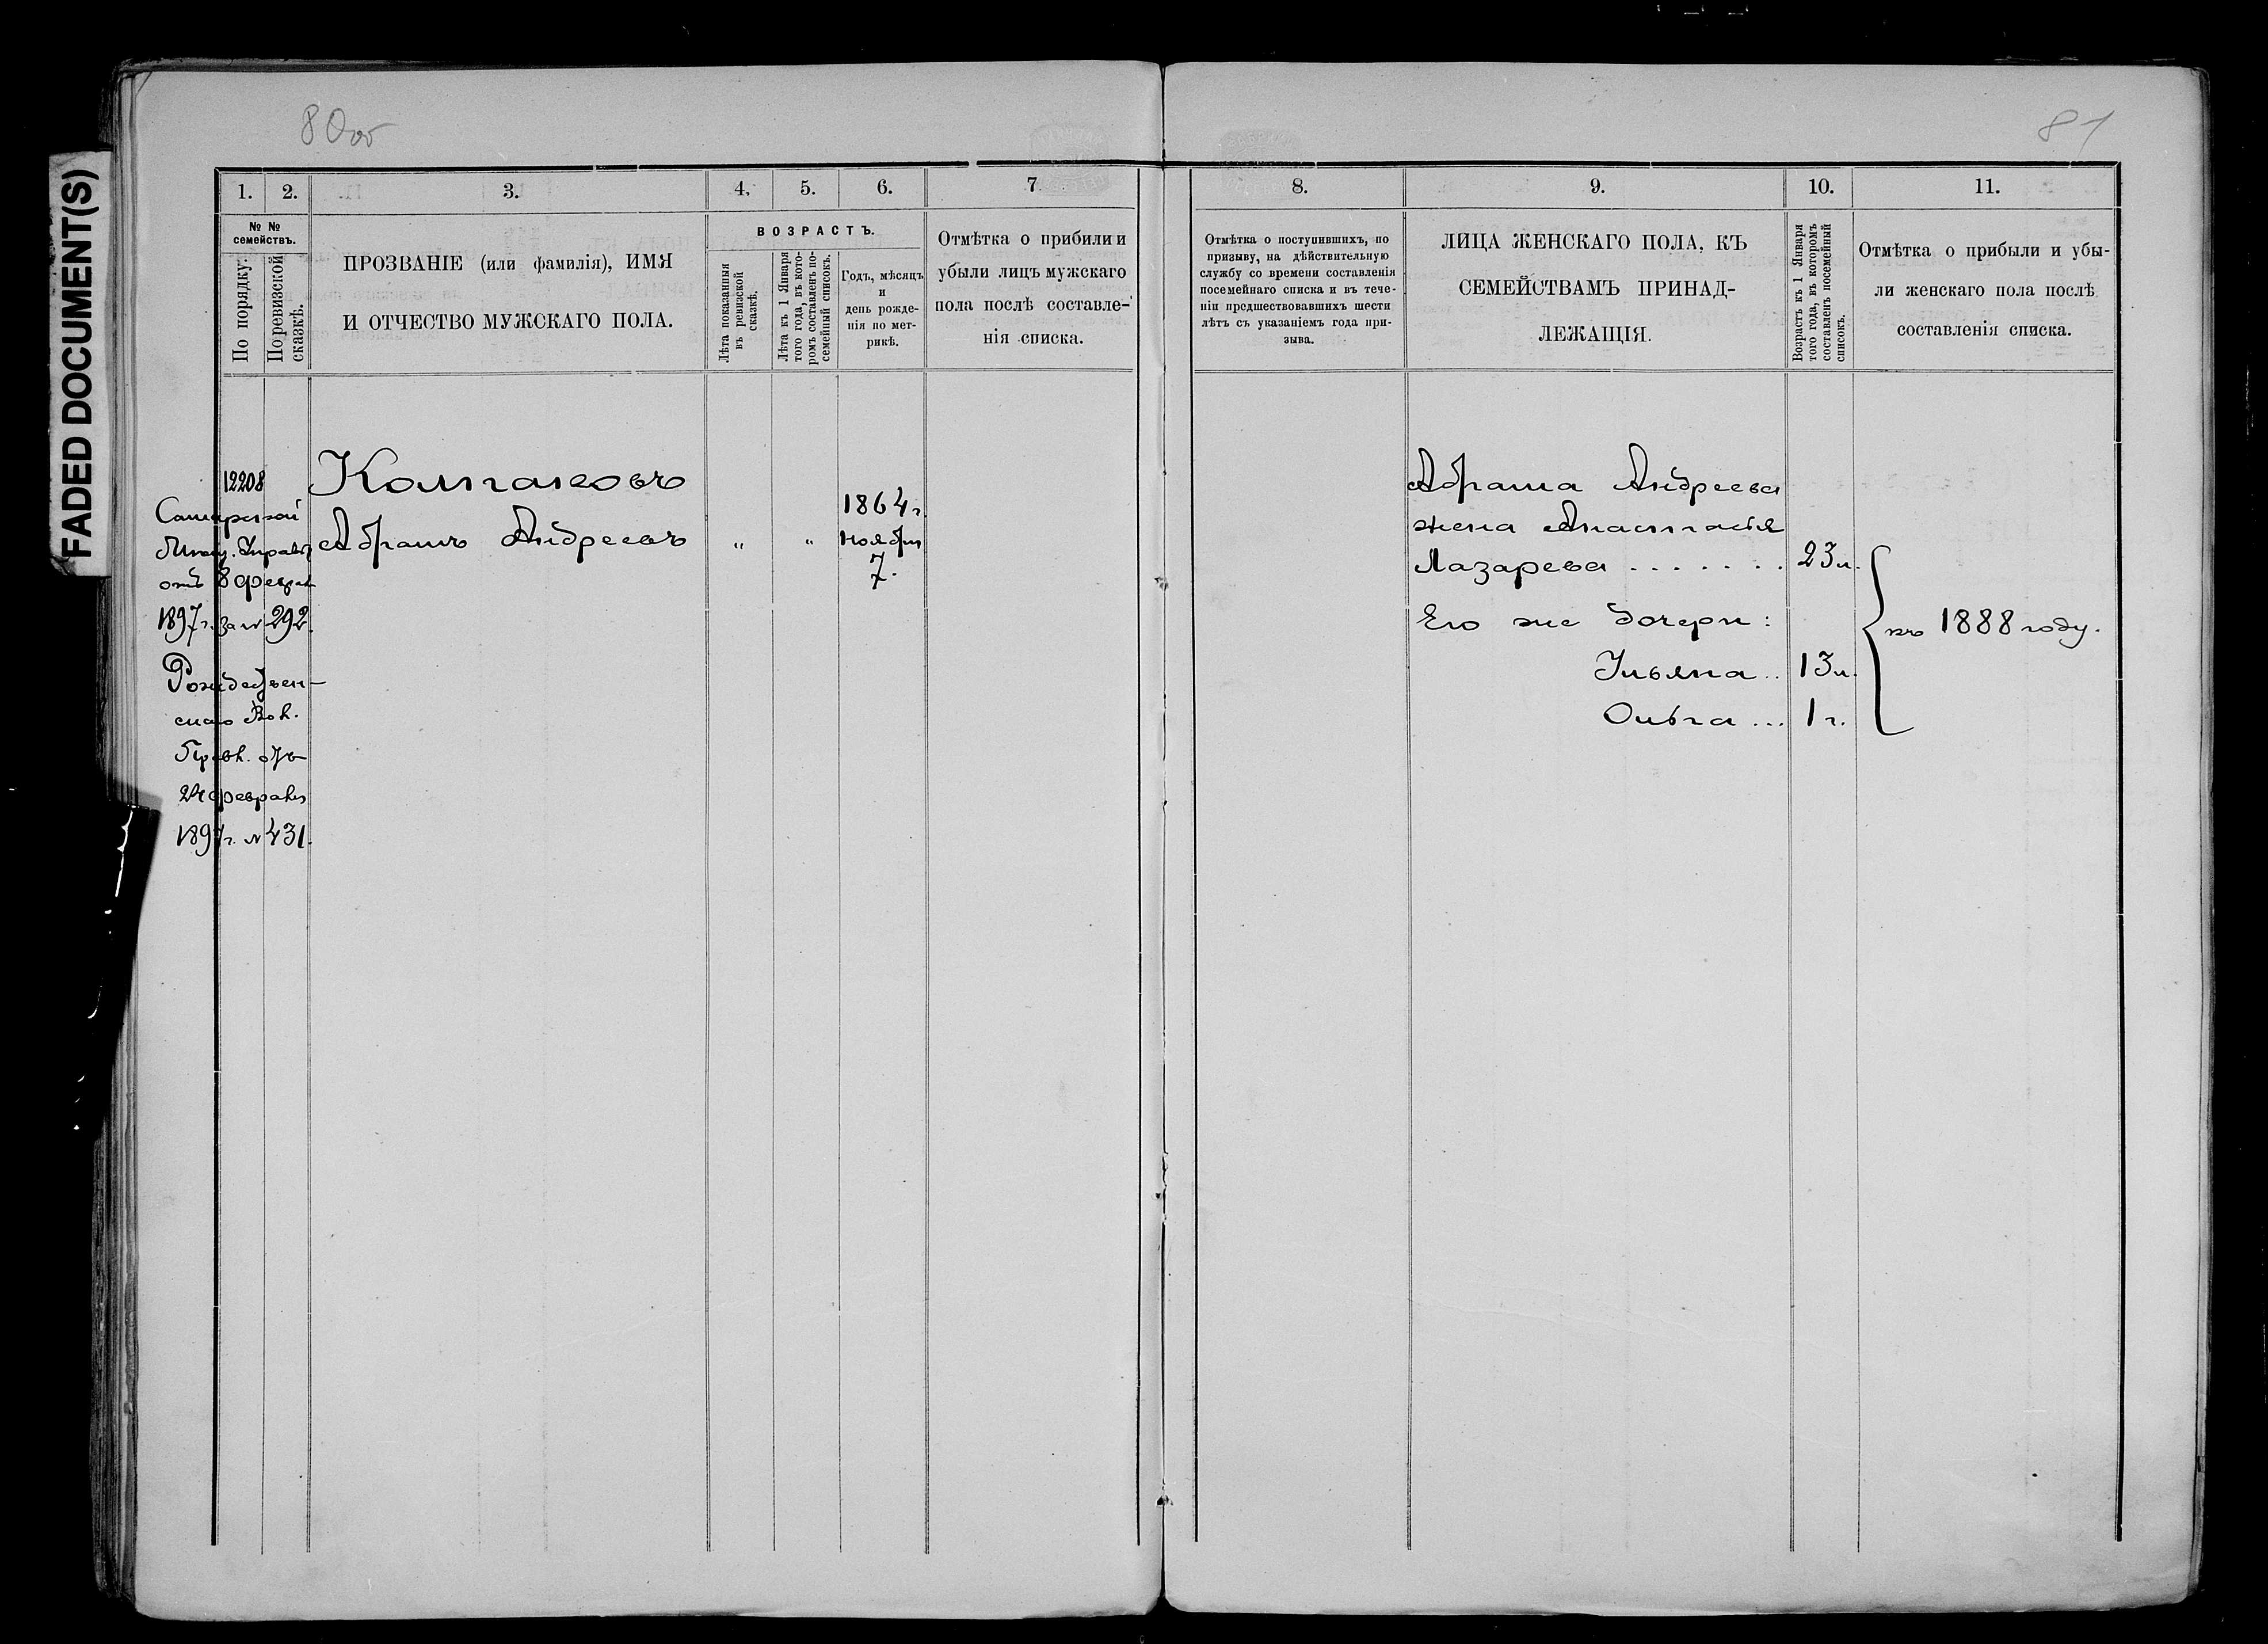 FADED DOCUMENT(S)
80об
81
1.
2.
3.
4.
5.
6.
7.
№ №
семействъ.
По порядку.
По ревизской
сказкѣ.
ПРОЗВАНІЕ (или фамилія), ИМЯ
И ОТЧЕСТВО МУЖСКАГО ПОЛА.
ВОЗРАСТЪ.
Лѣта показанныя
въ ревизской
сказкѣ.
Лѣта къ 1 Января
того года, въ кото-
ромъ составленъ по-
семейный списокъ.
Годъ, мѣсяцъ
и
день рожде-
нія по мет-
рикѣ.
Отмѣтка о прибыли и
убыли лицъ мужскаго
пола послѣ составле-
нія списка.
12208
Самарской
Мѣщ. Управы
отъ 8 феврал
1897 г. за № 292.
Рождествен-
скаго Вол.
Правл. отъ
24 февраля
1897 г. № 431.
Колпаковъ
Абрамъ Андреевъ " "
1864 г.
ноября
7.
8.
9.
10.
11.
Отмѣтка о поступившихъ, по
призыву, на дѣйствительную
службу со времени составленія
посемейнаго списка и въ тече-
ніи предшествовавшихъ шести
лѣтъ съ указаніемъ года при-
зыва.
ЛИЦА ЖЕНСКАГО ПОЛА, КЪ
СЕМЕЙСТВАМЪ ПРИНАД-
ЛЕЖАЩІЯ.
Возрастъ къ 1 Января
того года, въ которомъ
составленъ посемейный
списокъ.
Отмѣтка о прибыли и убы-
ли женскаго пола послѣ
составленія списка.
Абрама Андреева
жена Анастасья
Лазарева . . . . . . . 23 л.
Его же дочери:
Ульяна .. 13 л.
Ольга ... 1 г.
къ 1888 году.